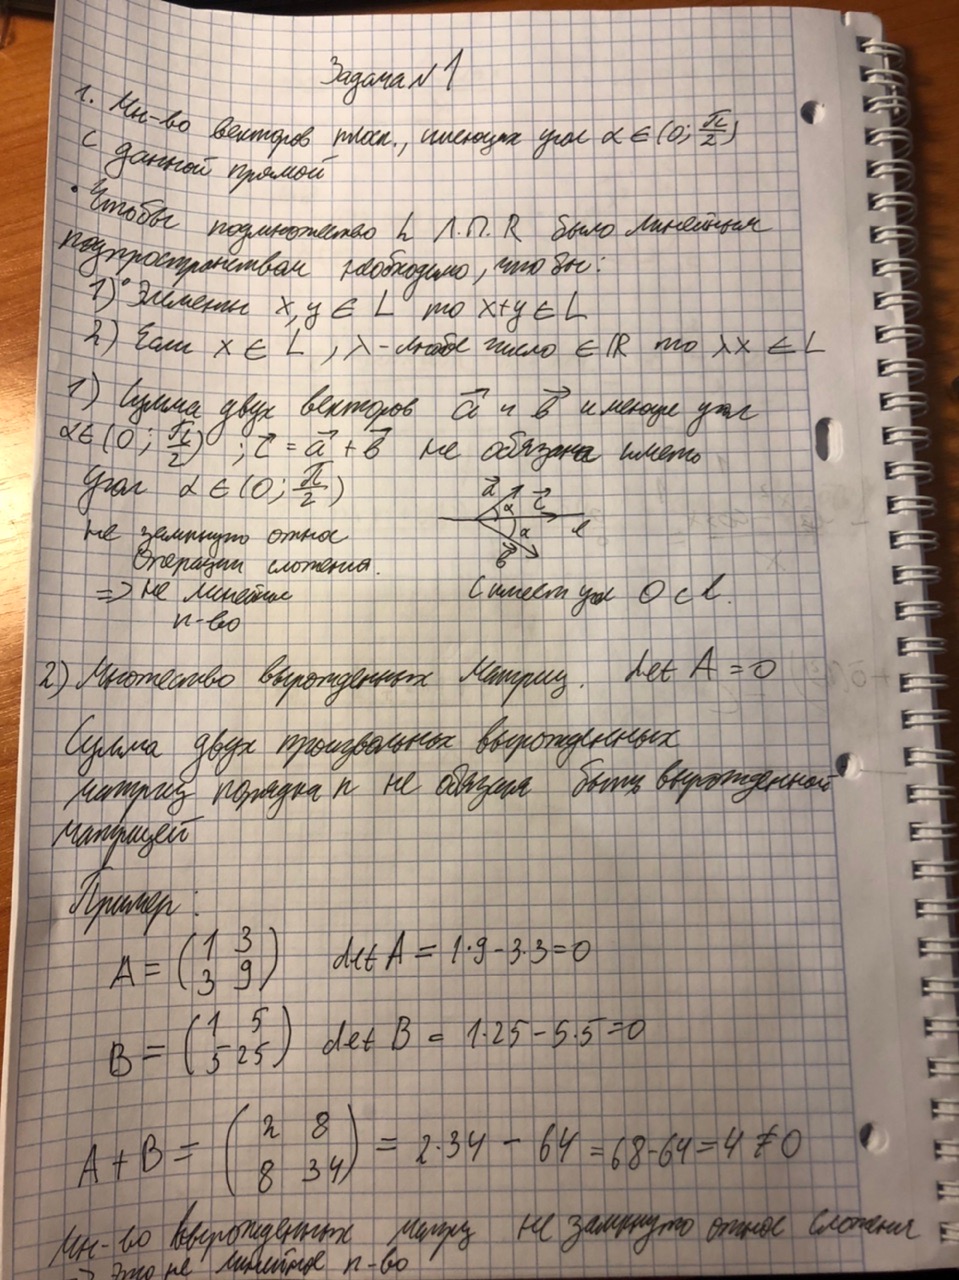 Задача №1
1. Мн-во векторов плоск., имеющих угол α ∈ (0; π/2)
с данной прямой
• Чтобы подмножество L Л.П. R было линейным
подпространствам необходимо, чтобы:
1) Элементы x, y ∈ L то x+y ∈ L
2) Если x ∈ L, λ - любое число ∈ ℝ то λx ∈ L
1) Сумма двух векторов a⃗ и b⃗ имеющие угол
α ∈ (0; π/2) ; c⃗ = a⃗ + b⃗ не обязана иметь
угол α ∈ (0; π/2)
a⃗ c⃗
α
α l
b⃗
не замкнуто относ
операции сложения.
=> не линейное
п-во
c имеет угол 0 с l.
2) Множество вырожденных матриц. det A = 0
Сумма двух произвольных вырожденных
матриц порядка n не обязана быть вырожденной
матрицей
Пример:
A = (1 3
3 9) det A = 1·9 - 3·3 = 0
B = (1 5
5 25) det B = 1·25 - 5·5 = 0
A + B = (2 8
8 34) = 2·34 - 64 = 68-64 = 4 ≠ 0
Мн-во вырожденных матриц не замкнуто относ сложения
=> Это не линейное п-во